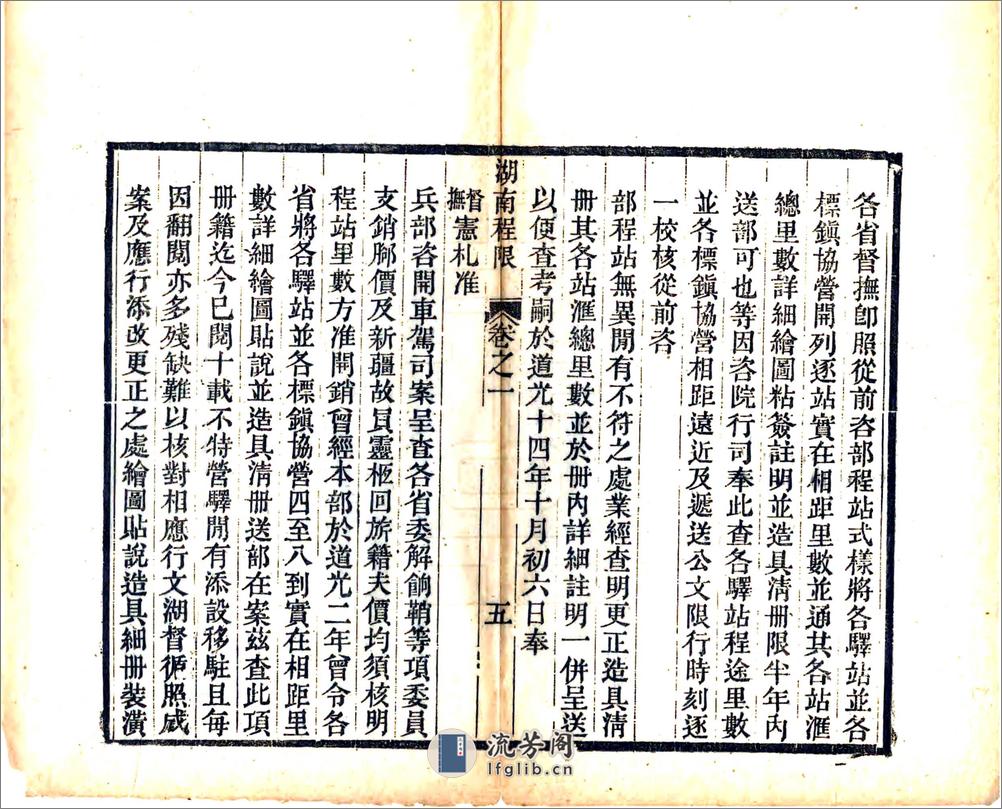 各省督撫卽照從前咨部程站式樣將各驛站並各
標鎭協營開列逐站實在相距里數並通其各站滙
總里數詳細繪圖粘簽註明並造具淸册限半年內
送部可也等因咨院行司奉此查各驛站程途里數
並各標鎭協營相距遠近及遞送公文限行時刻逐
一校核從前咨
部程站無異閒有不符之處業經查明更正造具淸
册其各站滙總里數並於册內詳細註明一併呈送
以便查考嗣於道光十四年十月初六日奉
湖南程限 卷之一 五
督撫憲札准
兵部咨開車駕司案呈查各省委解餉鞘等項委員
支銷腳價及新疆故員靈柩回旂籍夫價均須核明
程站里數方准開銷曾經本部於道光二年曾令各
省將各驛站並各標鎭協營四至八到實在相距里
數詳細繪圖貼說並造具淸册送部在案茲查此項
册籍迄今已閱十載不特營驛閒有添設移駐且每
因翻閱亦多殘缺難以核對相應行文湖督循照成
案及應行添改更正之處繪圖貼說造具細册裝潢
流芳阁
lfglib.cn